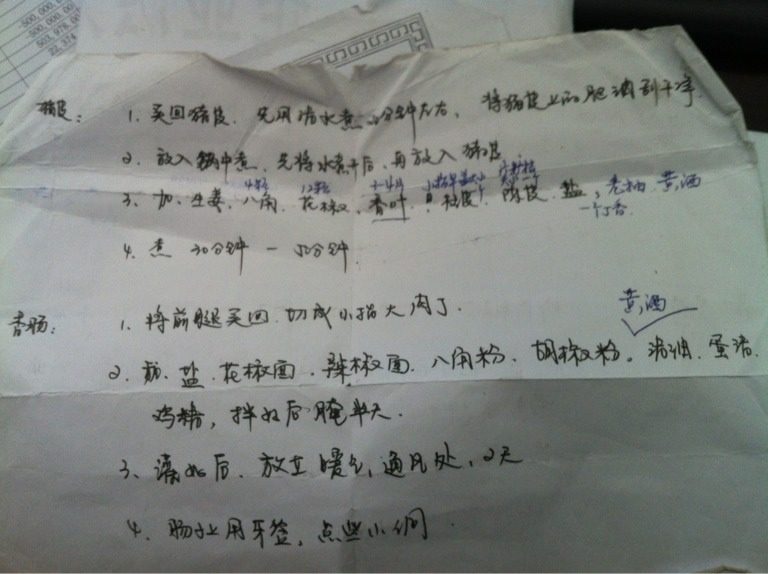 500,000.
500,000.
22,374
猪皮: 1. 买回猪皮. 先用清水煮 20分钟左右, 将猪皮上的肥油刮干净.
2. 放入锅中煮, 先将水煮开后, 再放入 猪皮
4粒 12粒 3-4片
3. 加. 生姜, 八角. 花椒, 香叶, 桂皮, 陈皮. 盐, 老抽. 黄酒
一个丁香.
4. 煮 30分钟 — 50分钟.
黄酒
香肠: 1. 将前腿买回. 切成小指大肉丁.
2. 盐. 花椒面. 辣椒面. 八角粉. 胡椒粉. 蛋清.
鸡精, 拌好后腌半天.
3. 灌好后. 放在暖气, 通风处, 2天
4. 肠子上用牙签, 点些小洞.